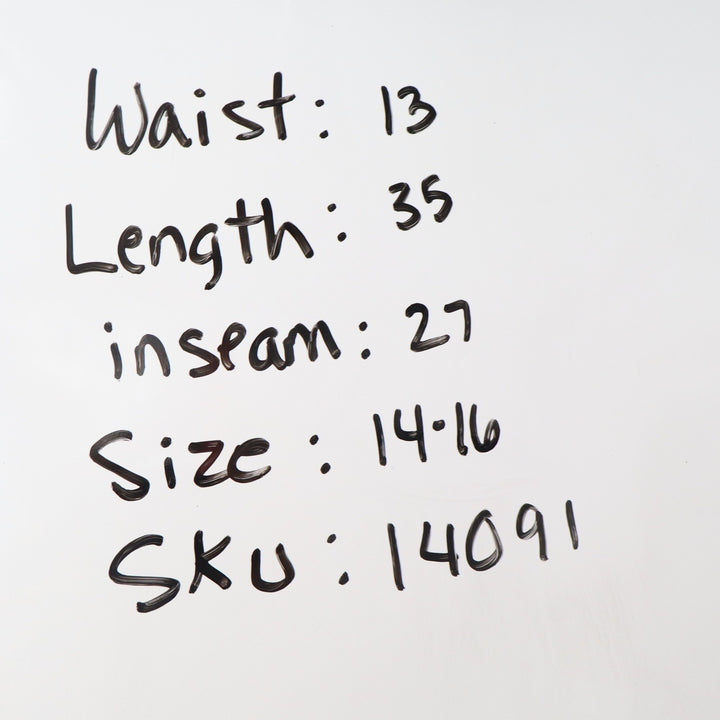 Waist: 13
Length: 35
inseam: 27
Size: 14-16
SKU: 14091